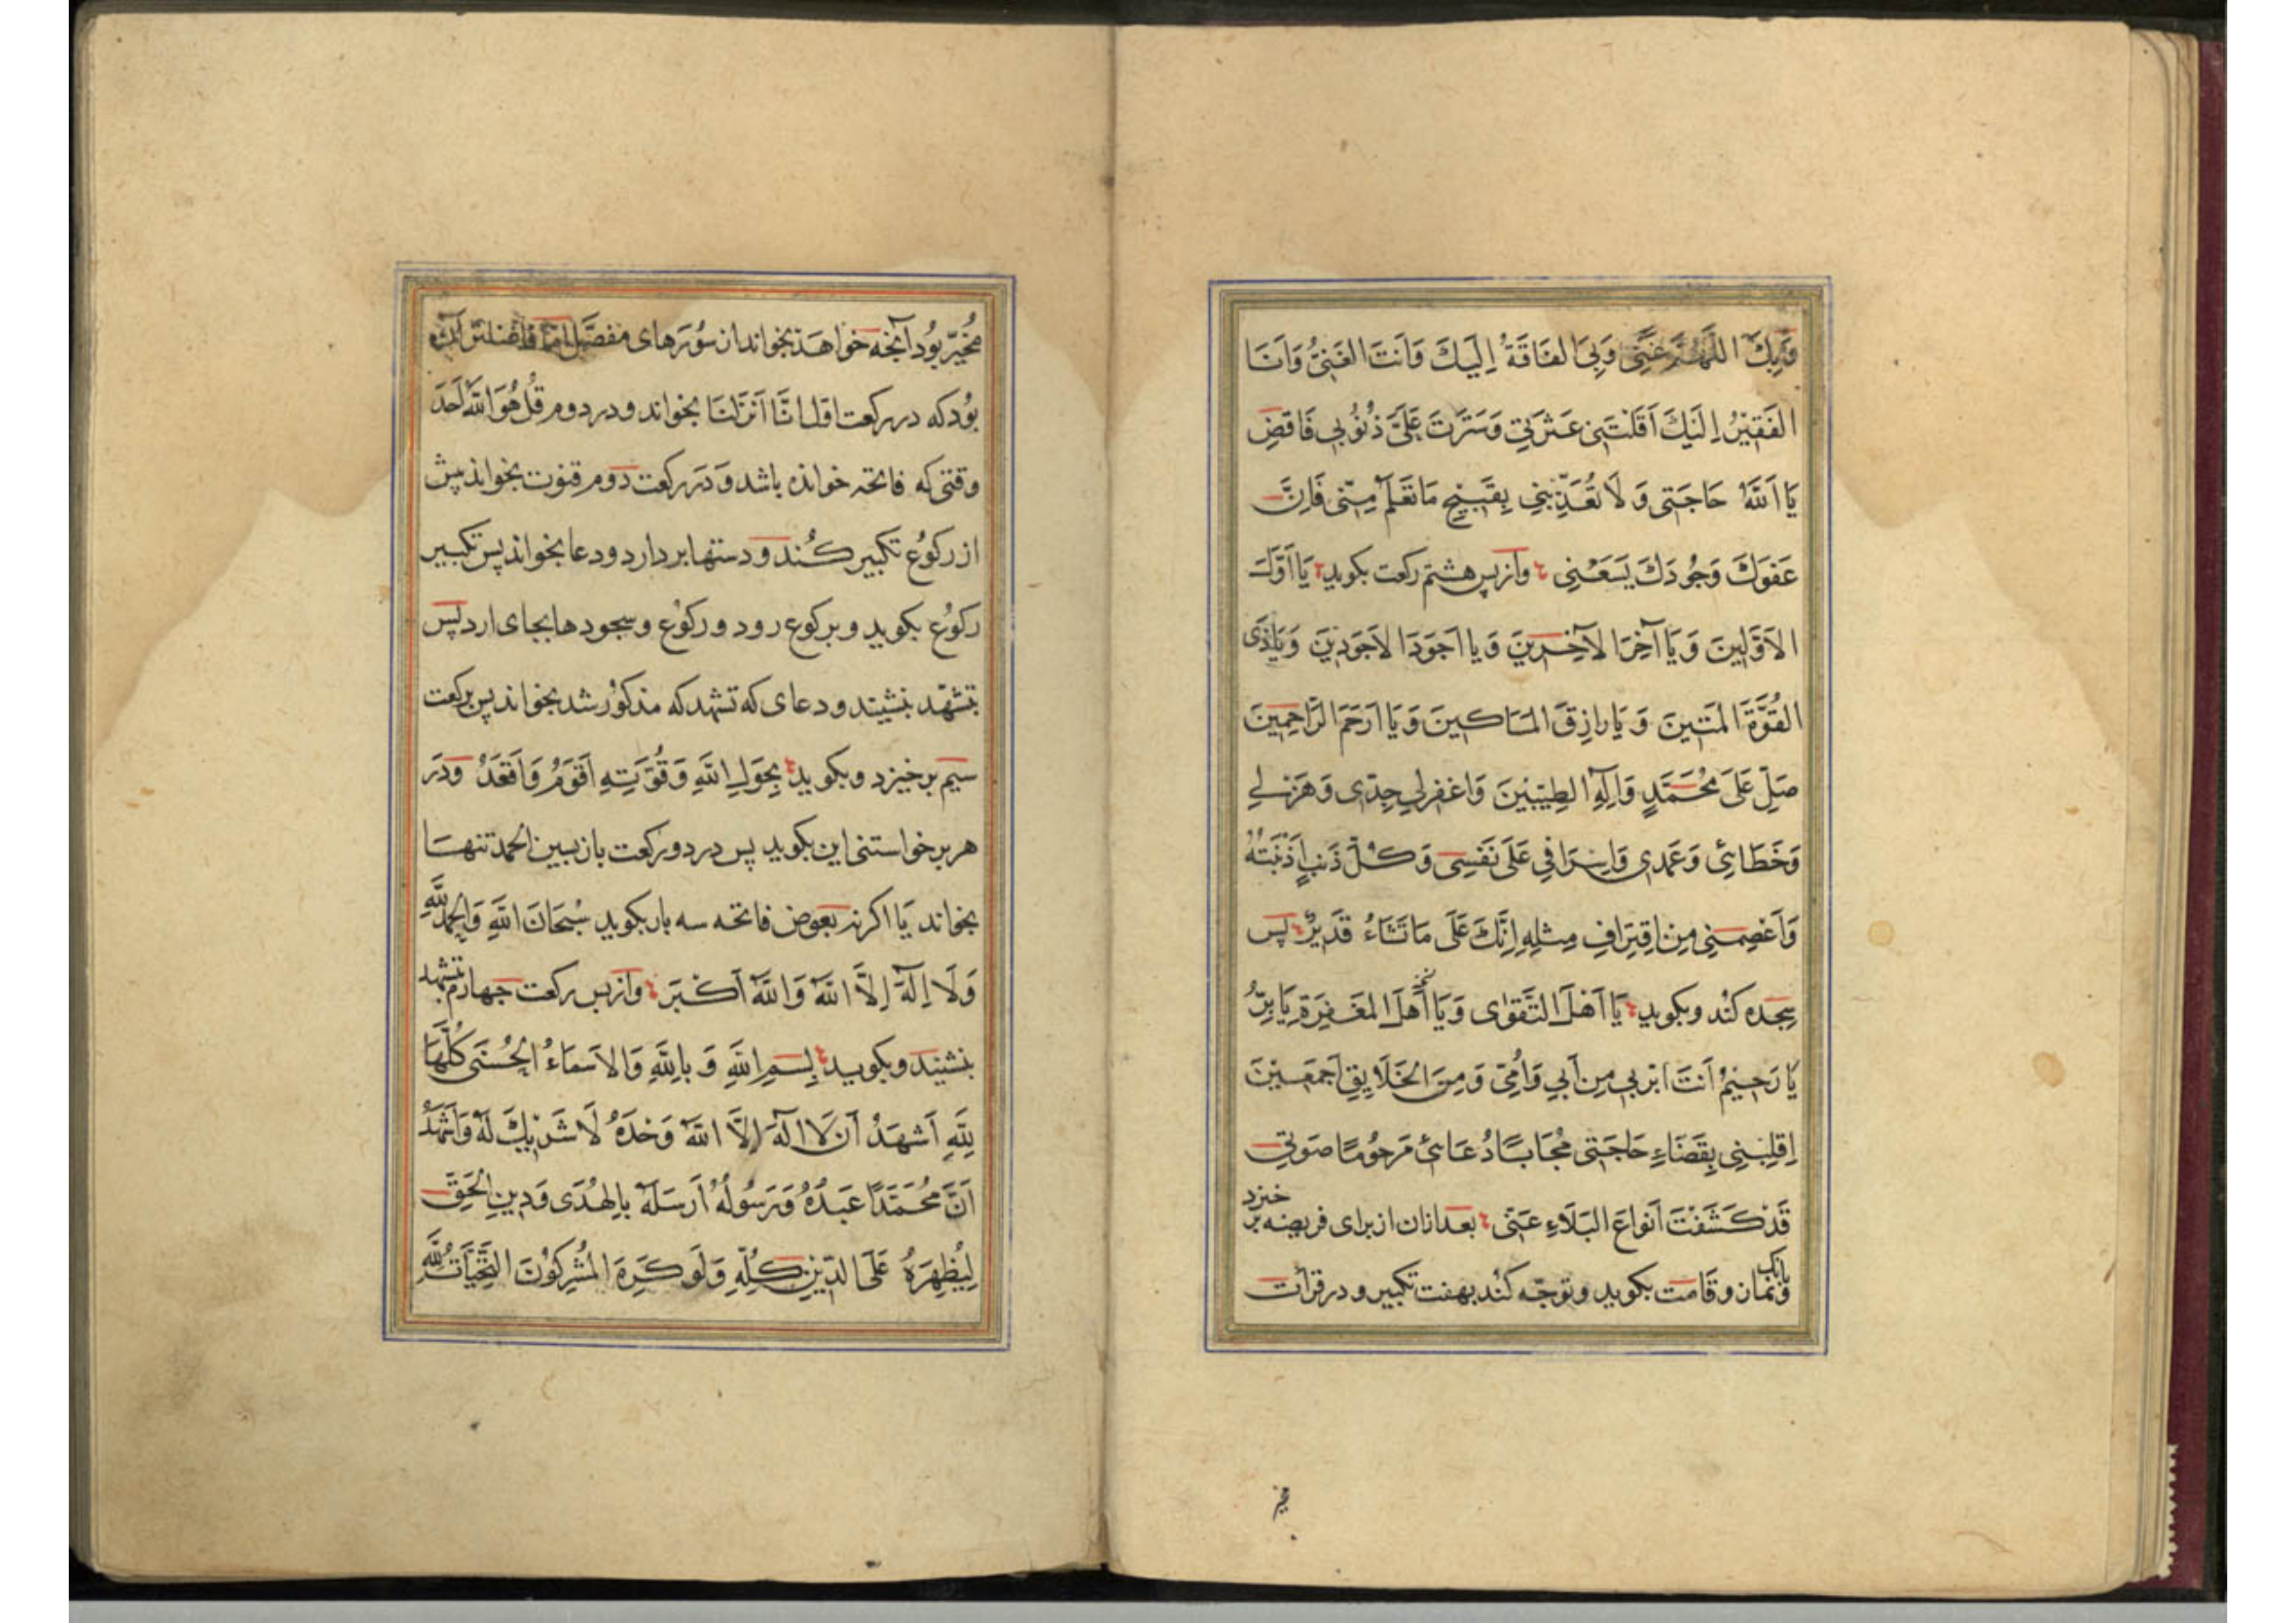 وَبِكَ اللَّهُمَّ غِنًى وَبِيَ الفَاقَةُ إِلَيكَ وَأَنتَ الغَنِيُّ وَأَنَا
الفَقِيْرُ إِلَيْكَ أَقَلْتَنِي عَثْرَتِي وَسَتَرتَ عَلَيَّ ذُنُوبِي فَاقضِ
يَا اَللَّهُ حَاجَتِي وَ لَا تُعَذِّبْنِي بِقَبِيْحِ مَا تَعلَمُ مِنّي فَإِنَّ
عَفوَكَ وَجُودَكَ يَسَعُنِي وازپس هشتم ركعت بكويد يَا أَوَّلَ
الأَوَّلِينَ وَيَا آخِرَ الآخِرِينَ وَيا أجوَدَ الأَجوَدِينَ وَيَاذَى
القُوَّةَ المَتِينَ وَيَا رازِقَ المَسَاكِينَ وَيَا أَرحَمَ الرَّاحِمِينَ
صَلِّ عَلَى مُحَمَّدٍ وَآلِهِ الطيّبِينَ وَاغفرلي جِدّى وَهَزلي
وَخَطَائِي وَعَمدِي وَإِسرَافِي عَلَى نَفسِي وَكُلَّ ذَنبٍ أَذْنَبتُهُ
وَاعْصِمنِي مِن اِقتِرَافِ مِثلِهِ إِنَّكَ عَلَى مَا تَشَاءُ قَدِيرٌ پس
سجده كند وبكويد يَا أَهْلَ التَّقوٰى وَيَا أَهلَ المَغفِرَةِ يَا بَرُّ
يَا رَحِيْمُ أَنتَ أبَرّبي مِن أَبي وَأُمّي وَمِنَ الخَلَايِقِ أَجمَعِيْنَ
اِقلِبْنِي بِقَضَاءِ حَاجَتِي مُجَابًا دُعَائي مَرحُومًا صَوتي
قَدْ كَشَفْتَ أَنواعَ البَلَاءِ عَنّي بعد ازان از براى فريضه بر خيزد
وبانك نمازوقامت بكويد وتوجّه كند بهفت تكبير و در قرآت
مُخَيّر بود آنچه خواهد بخواند از سُوَرهاى مفصّل امّا فاضلتر آنك
بُود كه در ركعت اوّل اِنَّا اَنزَلنَا بخواند و در دوم قُل هُوَ اللَّه اَحَد
وقتى كه فاتحه خوانده باشد وَ دَر ركعت دوم قنوت بخواند پيش
از ركُوع تكبير كُند و دستها بر دارد و دعا بخواند پس تكبير
ركُوع بكويد و بركوع رود و ركُوع و سجودها بجاى ارد پس
بتشهّد بنشيند و دعاى كه تشهد كه مذكُور شد بخواند پس بركعت
سيم بر خيزد و بكويد بِحَولِ اللَّهِ وَقُوَّتِهِ أَقوَمُ وَأَقعُدُ ودر
هر بر خواستنى اين بكويد پس در دو ركعت بازپسين الحمد تنها
بخواند يَا اكر نه بعوض فاتحه سه بار بكويد سُبحَانَ اللَّهِ وَالحَمدُ لِلَّهِ
وَلَا إِلَهَ إِلَّا اللَّهُ وَاللَّهُ أَكبَرُ وازپس ركعت چهارم بتشهد
بنشيند و بكويد بِسمِ اللَّهِ وَ بِاللَّهِ وَالاَسمَاءُ الحُسنَى كُلُّهَا
لِلَّهِ اَشهَدُ اَن لَا اِلَهَ اِلَّا اللَّهُ وَحدَهُ لَا شَرِيكَ لَهُ وَاَشهَدُ
اَنَّ مُحَمَّدًا عَبدُهُ وَرَسُولُهُ أَرسَلَهُ بِالهُدَى وَدِينِ الحَقِّ
لِيُظْهِرَهُ عَلَى الدِّينِ كُلِّهِ وَلَو كَرِهَ المُشرِكُونَ التَّحِيَّاتُ لِلَّهِ